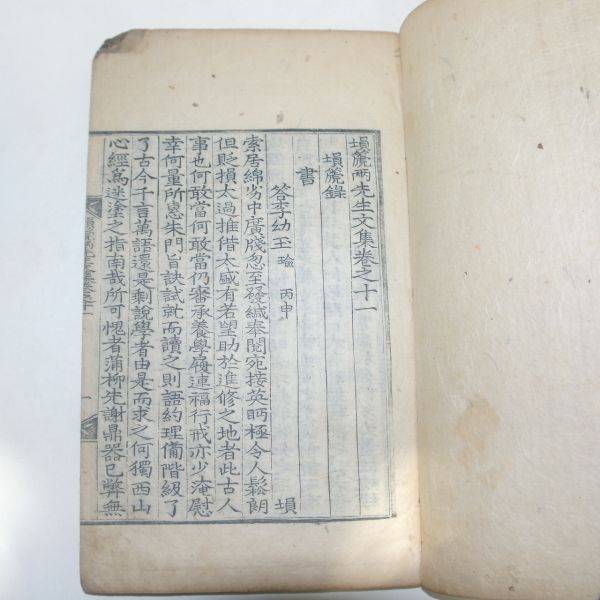 塤篪兩先生文集卷之十一
塤篪錄
書
答李幼玉 瑜 丙申 塤
索居綿劣中廣牋忽至發緘奉閱宛接英眄極令人鬆朗
但貶損太過推借太盛有若望助於進修之地者此古人
事也何敢當何敢當仍審承養學履連福行戒亦少淹慰
幸何量所思朱門旨訣試就而讀之則語約理備階級了
了古今千言萬語還是剩說學者由是而求之何獨西山
心經爲迷塗之指南哉所可愧者蒲柳先謝鼎器已弊無